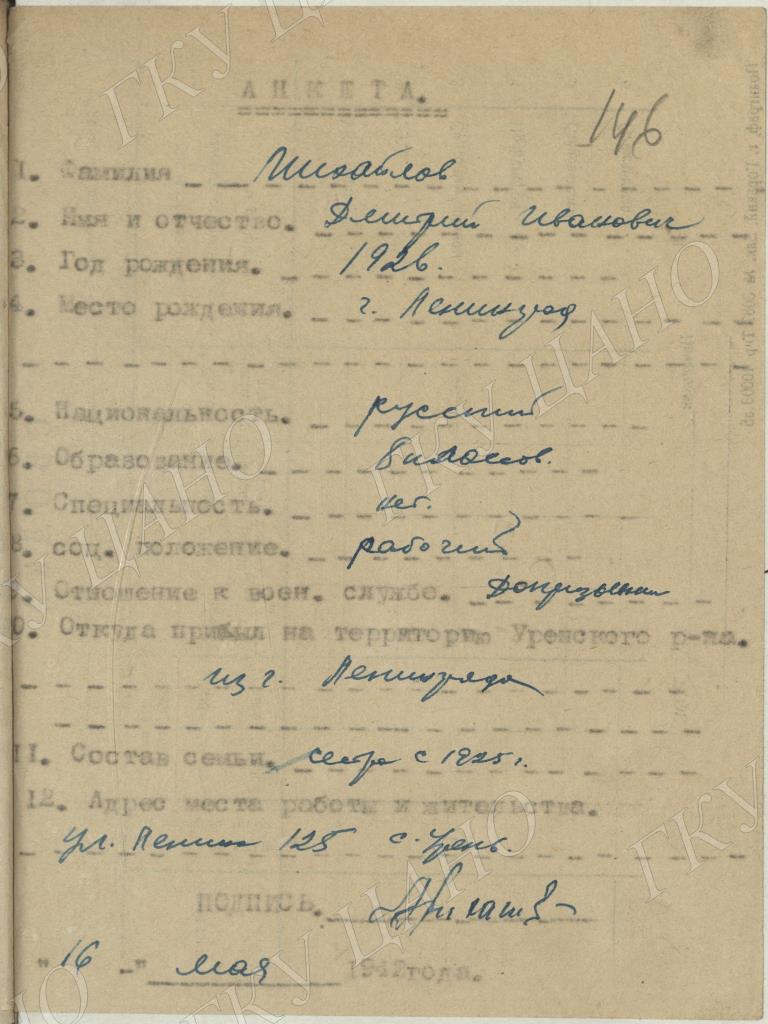 АНКЕТА.
146
1. Фамилия Михайлов
2. Имя и отчество. Дмитрий Иванович
3. Год рождения. 1926.
4. Место рождения. г. Ленинград
5. Национальность. русский
6. Образование. 8 классов.
7. Специальность. нет.
8. соц. положение. рабочий
9. Отношение к воен. службе. Допризывник
10. Откуда прибыл на территорию Уренского р-на.
из г. Ленинграда
11. Состав семьи. сестра с 1925 г.
12. Адрес места роботы и жительства.
ул. Ленина 125 с. Урень.
ПОДПИСЬ.
"16-" мая 1942года.
ГКУ ЦАНО
ГКУ ЦАНО
ГКУ ЦАНО
ГКУ ЦАНО
ГКУ